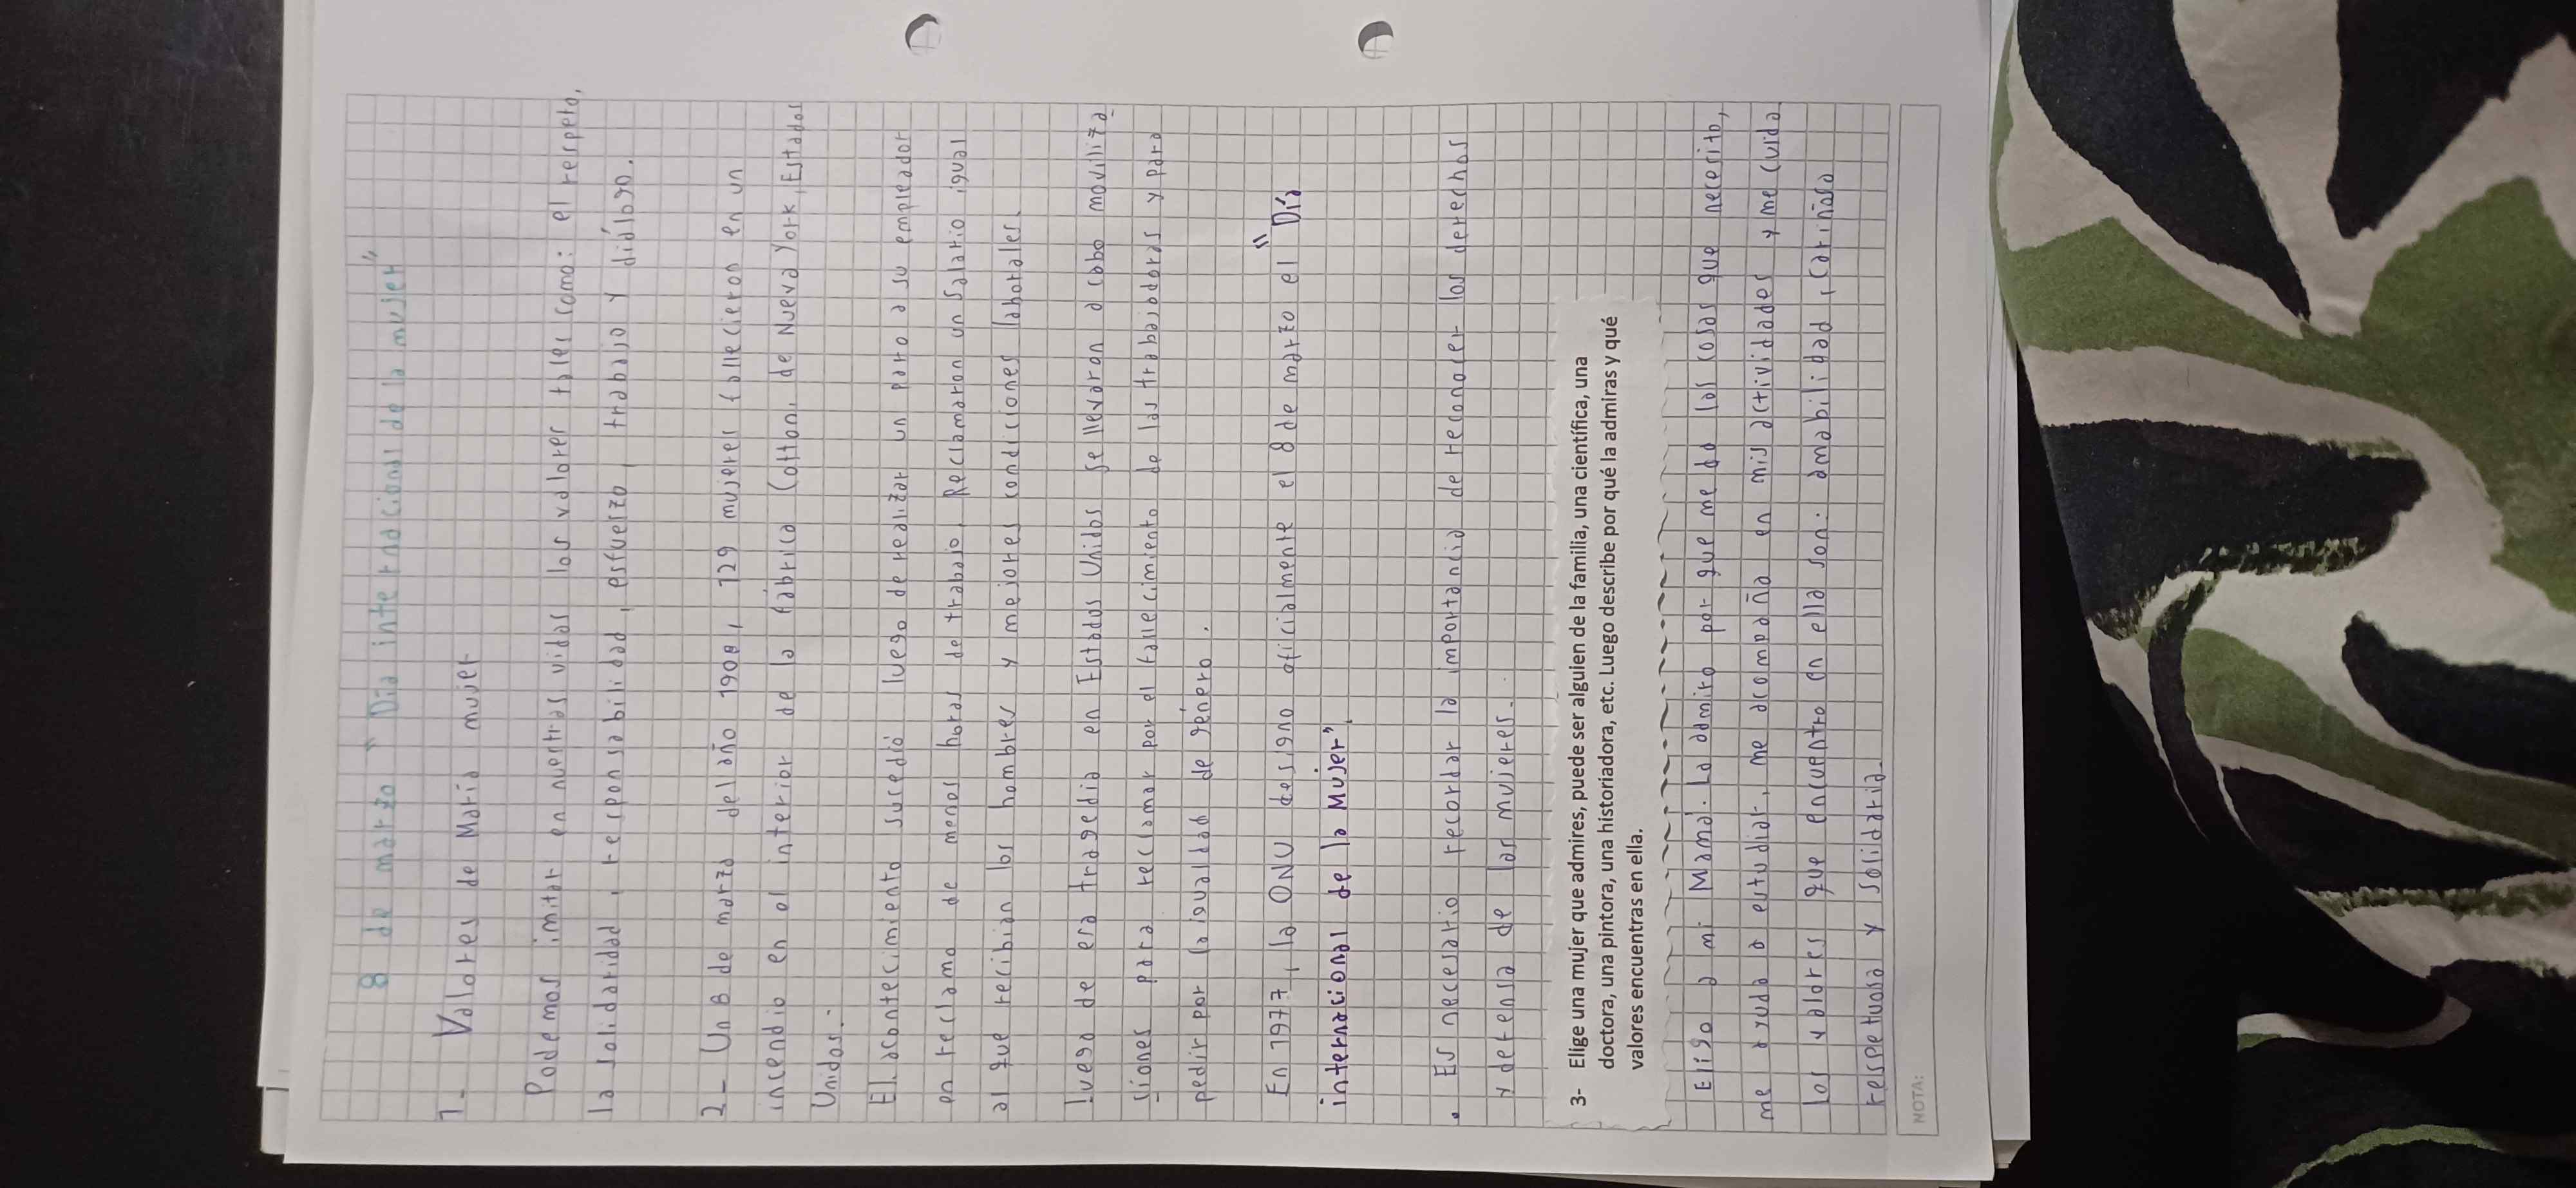 8 de marzo "Día internacional de la mujer"
1- Valores de María mujer
Podemos imitar en nuestras vidas los valores tales como: el respeto,
la solidaridad, responsabilidad, esfuerzo, trabajo y diálogo.
2- Un 8 de marzo del año 1908, 129 mujeres fallecieron en un
incendio en el interior de la fábrica Cotton, de Nueva York, Estados
Unidos.
El acontecimiento sucedió luego de realizar un paro a su empleador
en reclamo de menos horas de trabajo. Reclamaron un salario igual
al que recibían los hombres y mejores condiciones laborales.
Luego de esa tragedia en Estados Unidos se llevaron a cabo moviliza
ciones para reclamar por el fallecimiento de las trabajadoras y para
pedir por la igualdad de género.
En 1977, la ONU designo oficialmente el 8 de marzo el "Día
internacional de la Mujer".
• Es necesario recordar la importancia de reconocer los derechos
y defensa de las mujeres.
3- Elige una mujer que admires, puede ser alguien de la familia, una científica, una
doctora, una pintora, una historiadora, etc. Luego describe por qué la admiras y qué
valores encuentras en ella.
Eligo a mi Mamá. La admiro por que me da las cosas que necesito,
me ayuda a estudiar, me acompaña en mis actividades y me cuida.
los valores que encuentro en ella son: amabilidad, cariñosa
respetuosa y solidaria.
NOTA: